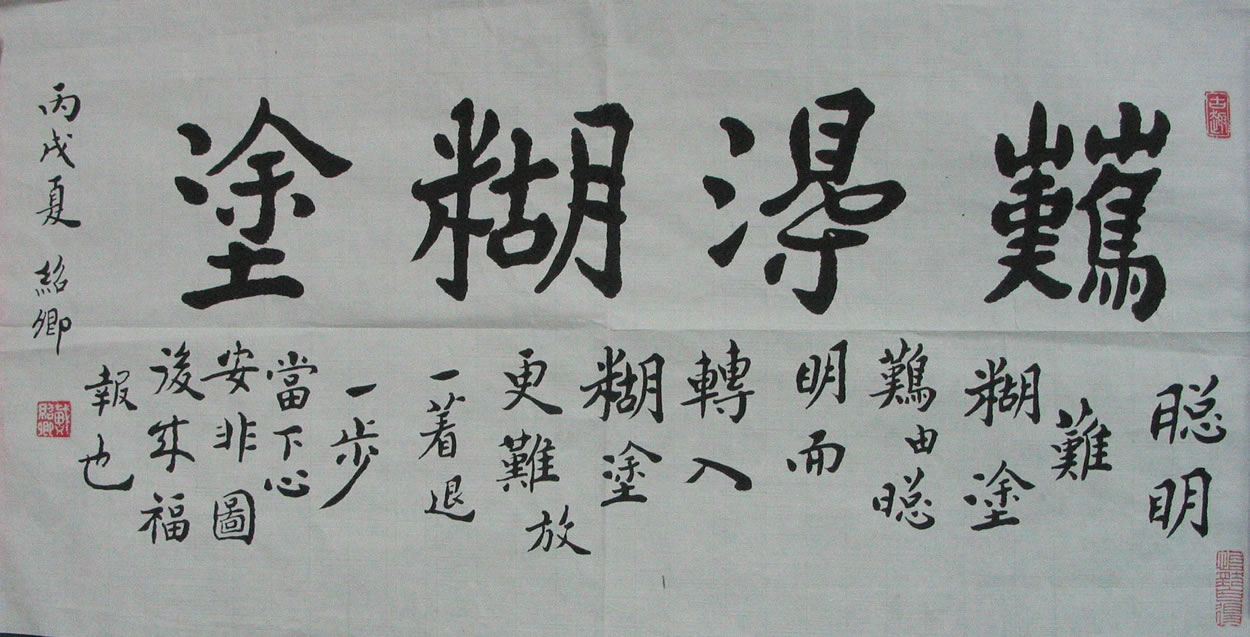 難得糊塗
聰明
難
糊塗
難由聰
明而
轉入
糊塗
更難放
一着退
一步
當下心
安非圖
後來福
報也
丙戌夏 紹卿
戴紹卿